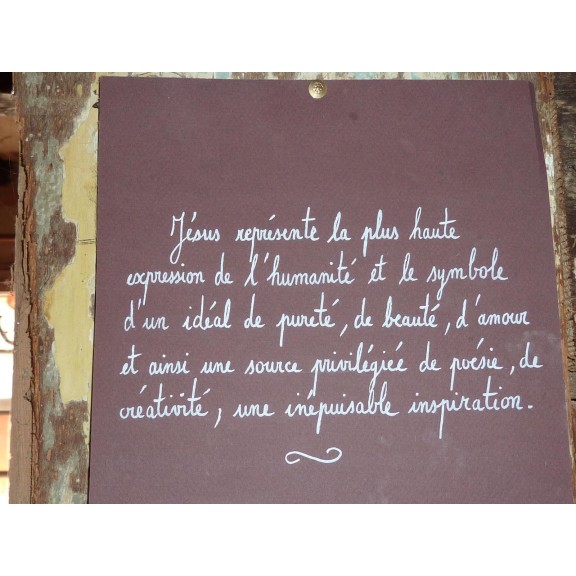 Jésus représente la plus haute
expression de l'humanité et le symbole
d'un idéal de pureté, de beauté, d'amour
et ainsi une source privilégiée de poésie, de
créativité, une inépuisable inspiration.